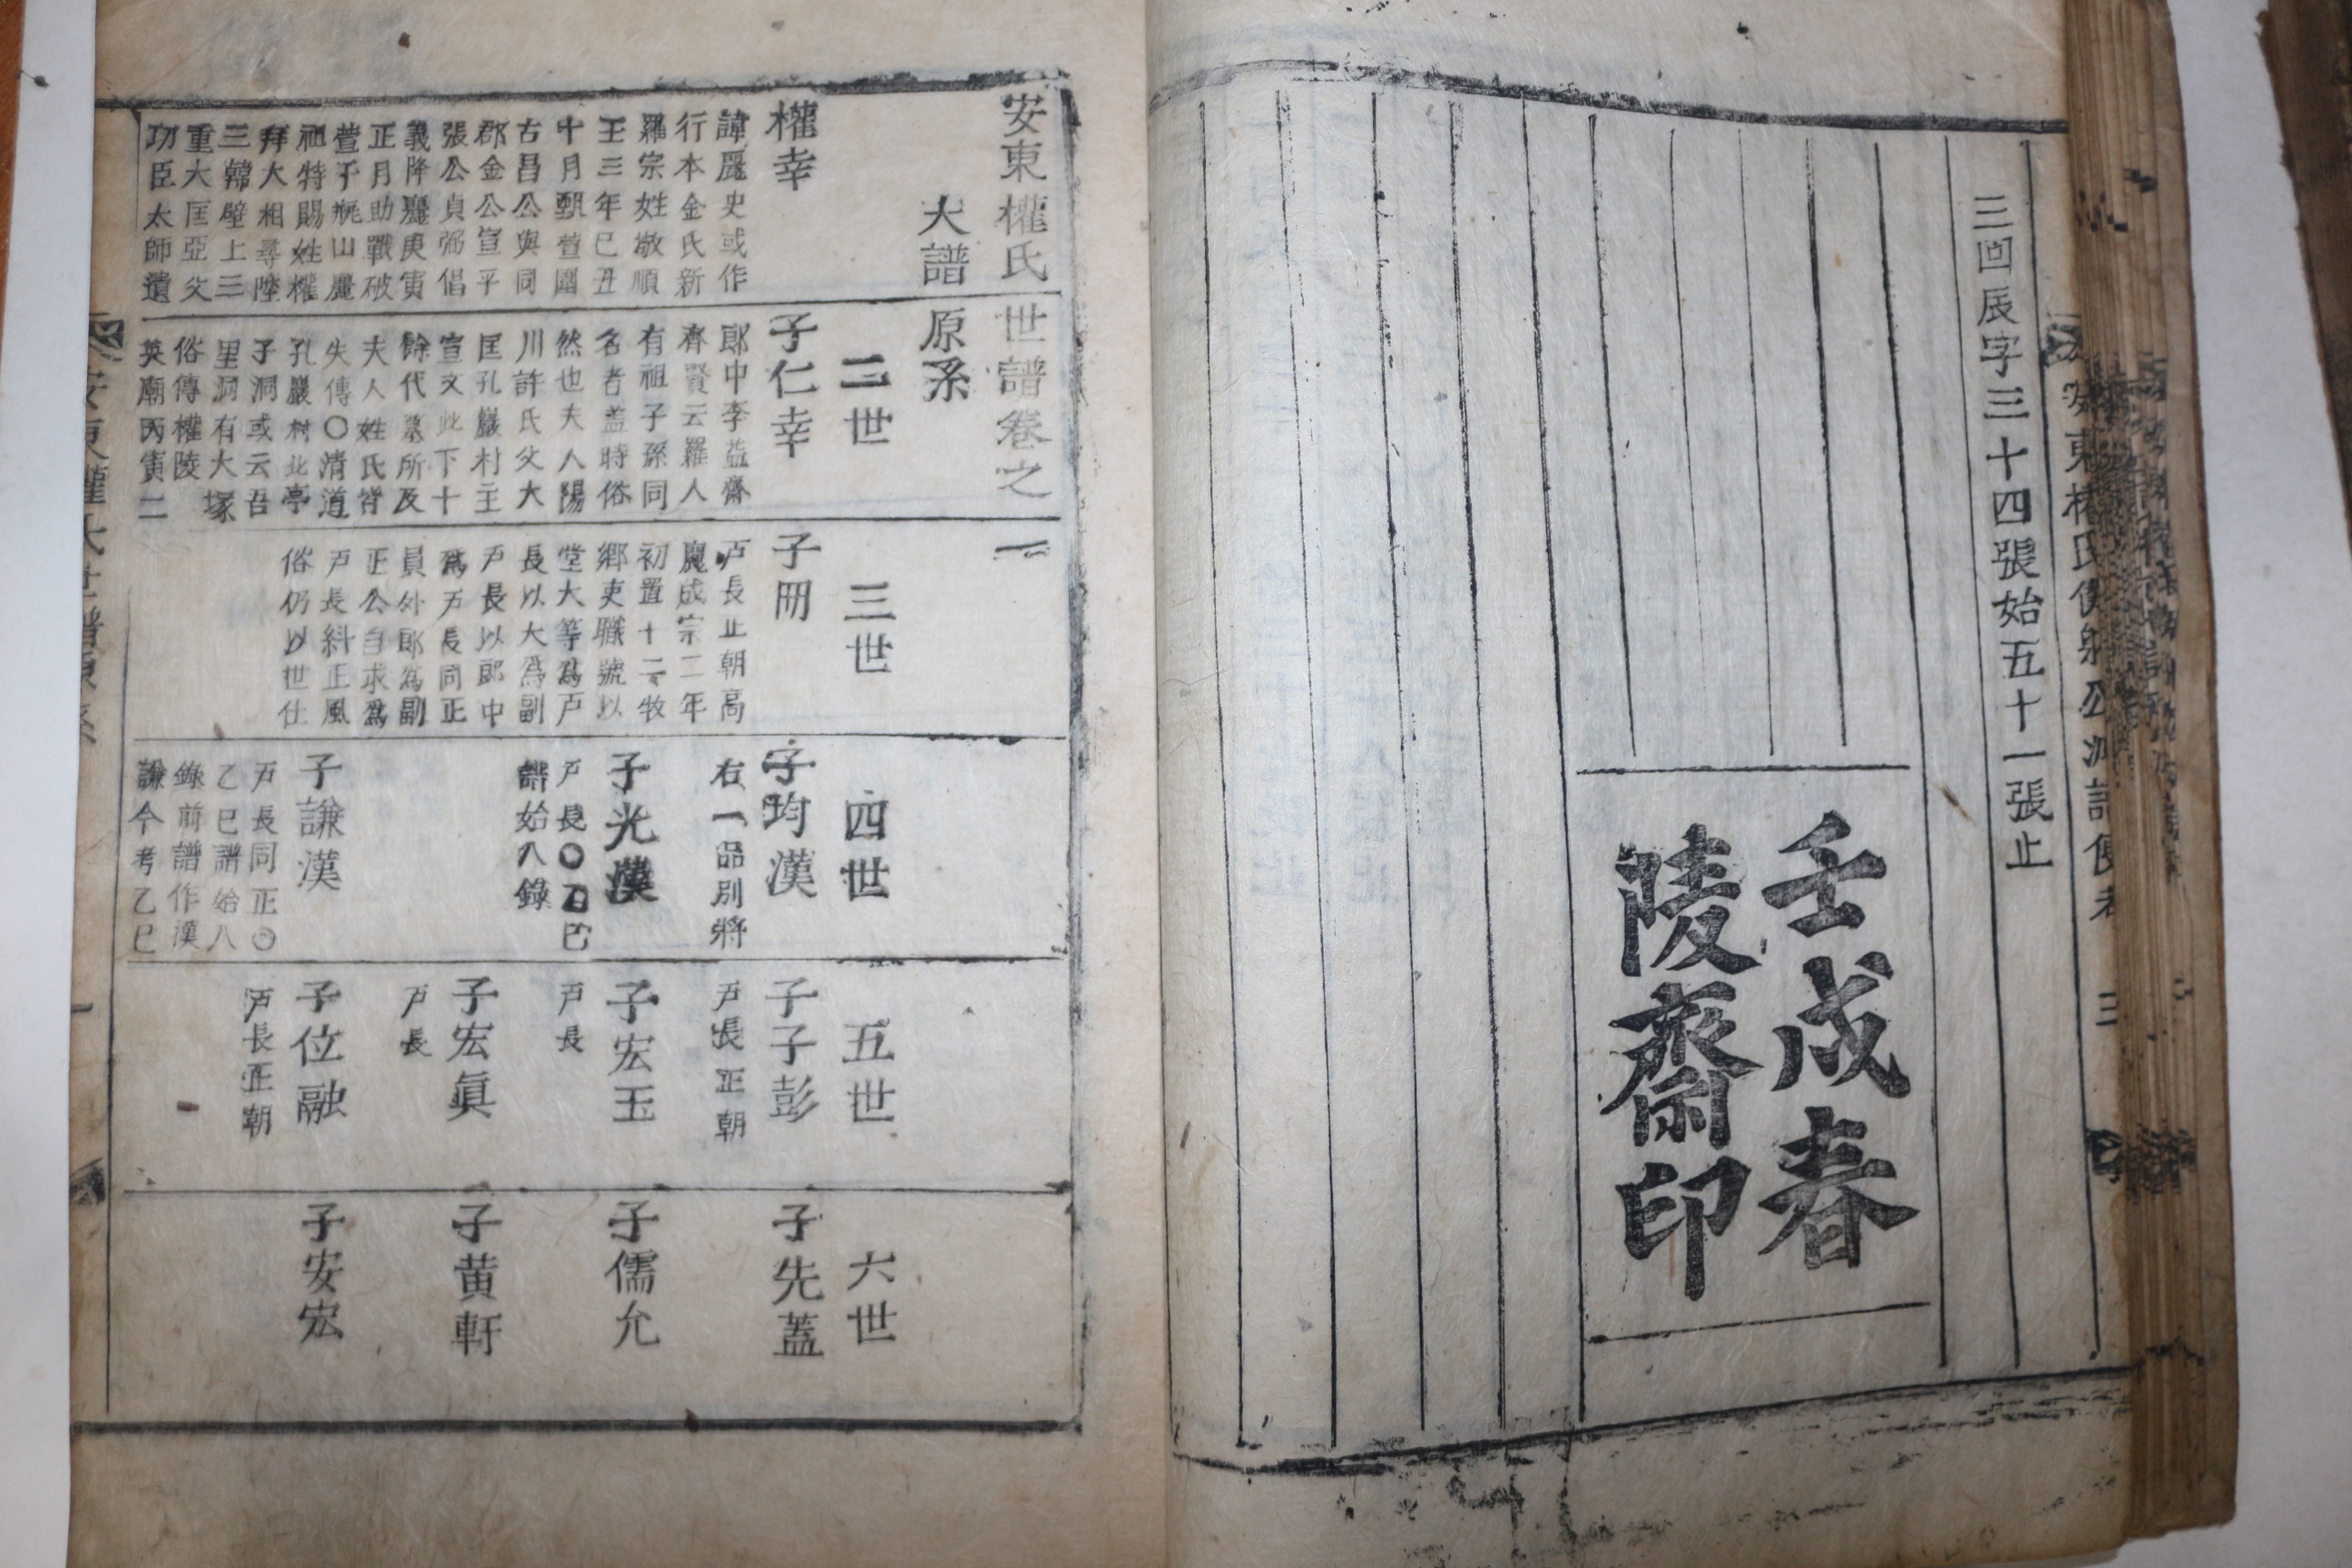 三回辰字三十四張始五十一張止
壬戌春
陵齋印
安東權氏世譜卷之一
大譜
原系
權幸
諱麗史或作
行本金氏新
羅宗姓敬順
王三年己丑
十月甄萱圍
古昌公與同
郡金公宣平
張公貞弼倡
義降麗庚寅
正月助戰破
萱于甁山麗
祖特賜姓權
拜大相尋陞
三韓壁上三
重大匡亞父
功臣太師遺
二世
子仁幸
郞中李益齋
齊賢云羅人
有祖子孫同
名者盖時俗
然也夫人陽
川許氏父大
匡孔巖村主
宣文此下十
餘代墓所及
夫人姓氏皆
失傳〇清道
孔巖村北亭
子洞或云吾
里洞有大塚
俗傳權陵
英廟丙寅二
三世
子冊
戶長正朝高
麗成宗二年
初置十二牧
鄕吏職號以
堂大等爲戶
長以大爲副
戶長以郞中
爲戶長同正
員外郞爲副
正公自求爲
戶長糾正風
俗仍以世仕
四世
子均漢
右一品別將
子光漢
戶長〇乙巳
譜始入錄
子謙漢
戶長同正〇
乙巳譜始入
錄前譜作漢
謙今考乙巳
五世
子子彭
戶長正朝
子宏玉
戶長
子宏眞
戶長
子位融
戶長正朝
六世
子先蓋
子儒允
子黃軒
子安宏
安東權氏世譜原系
一